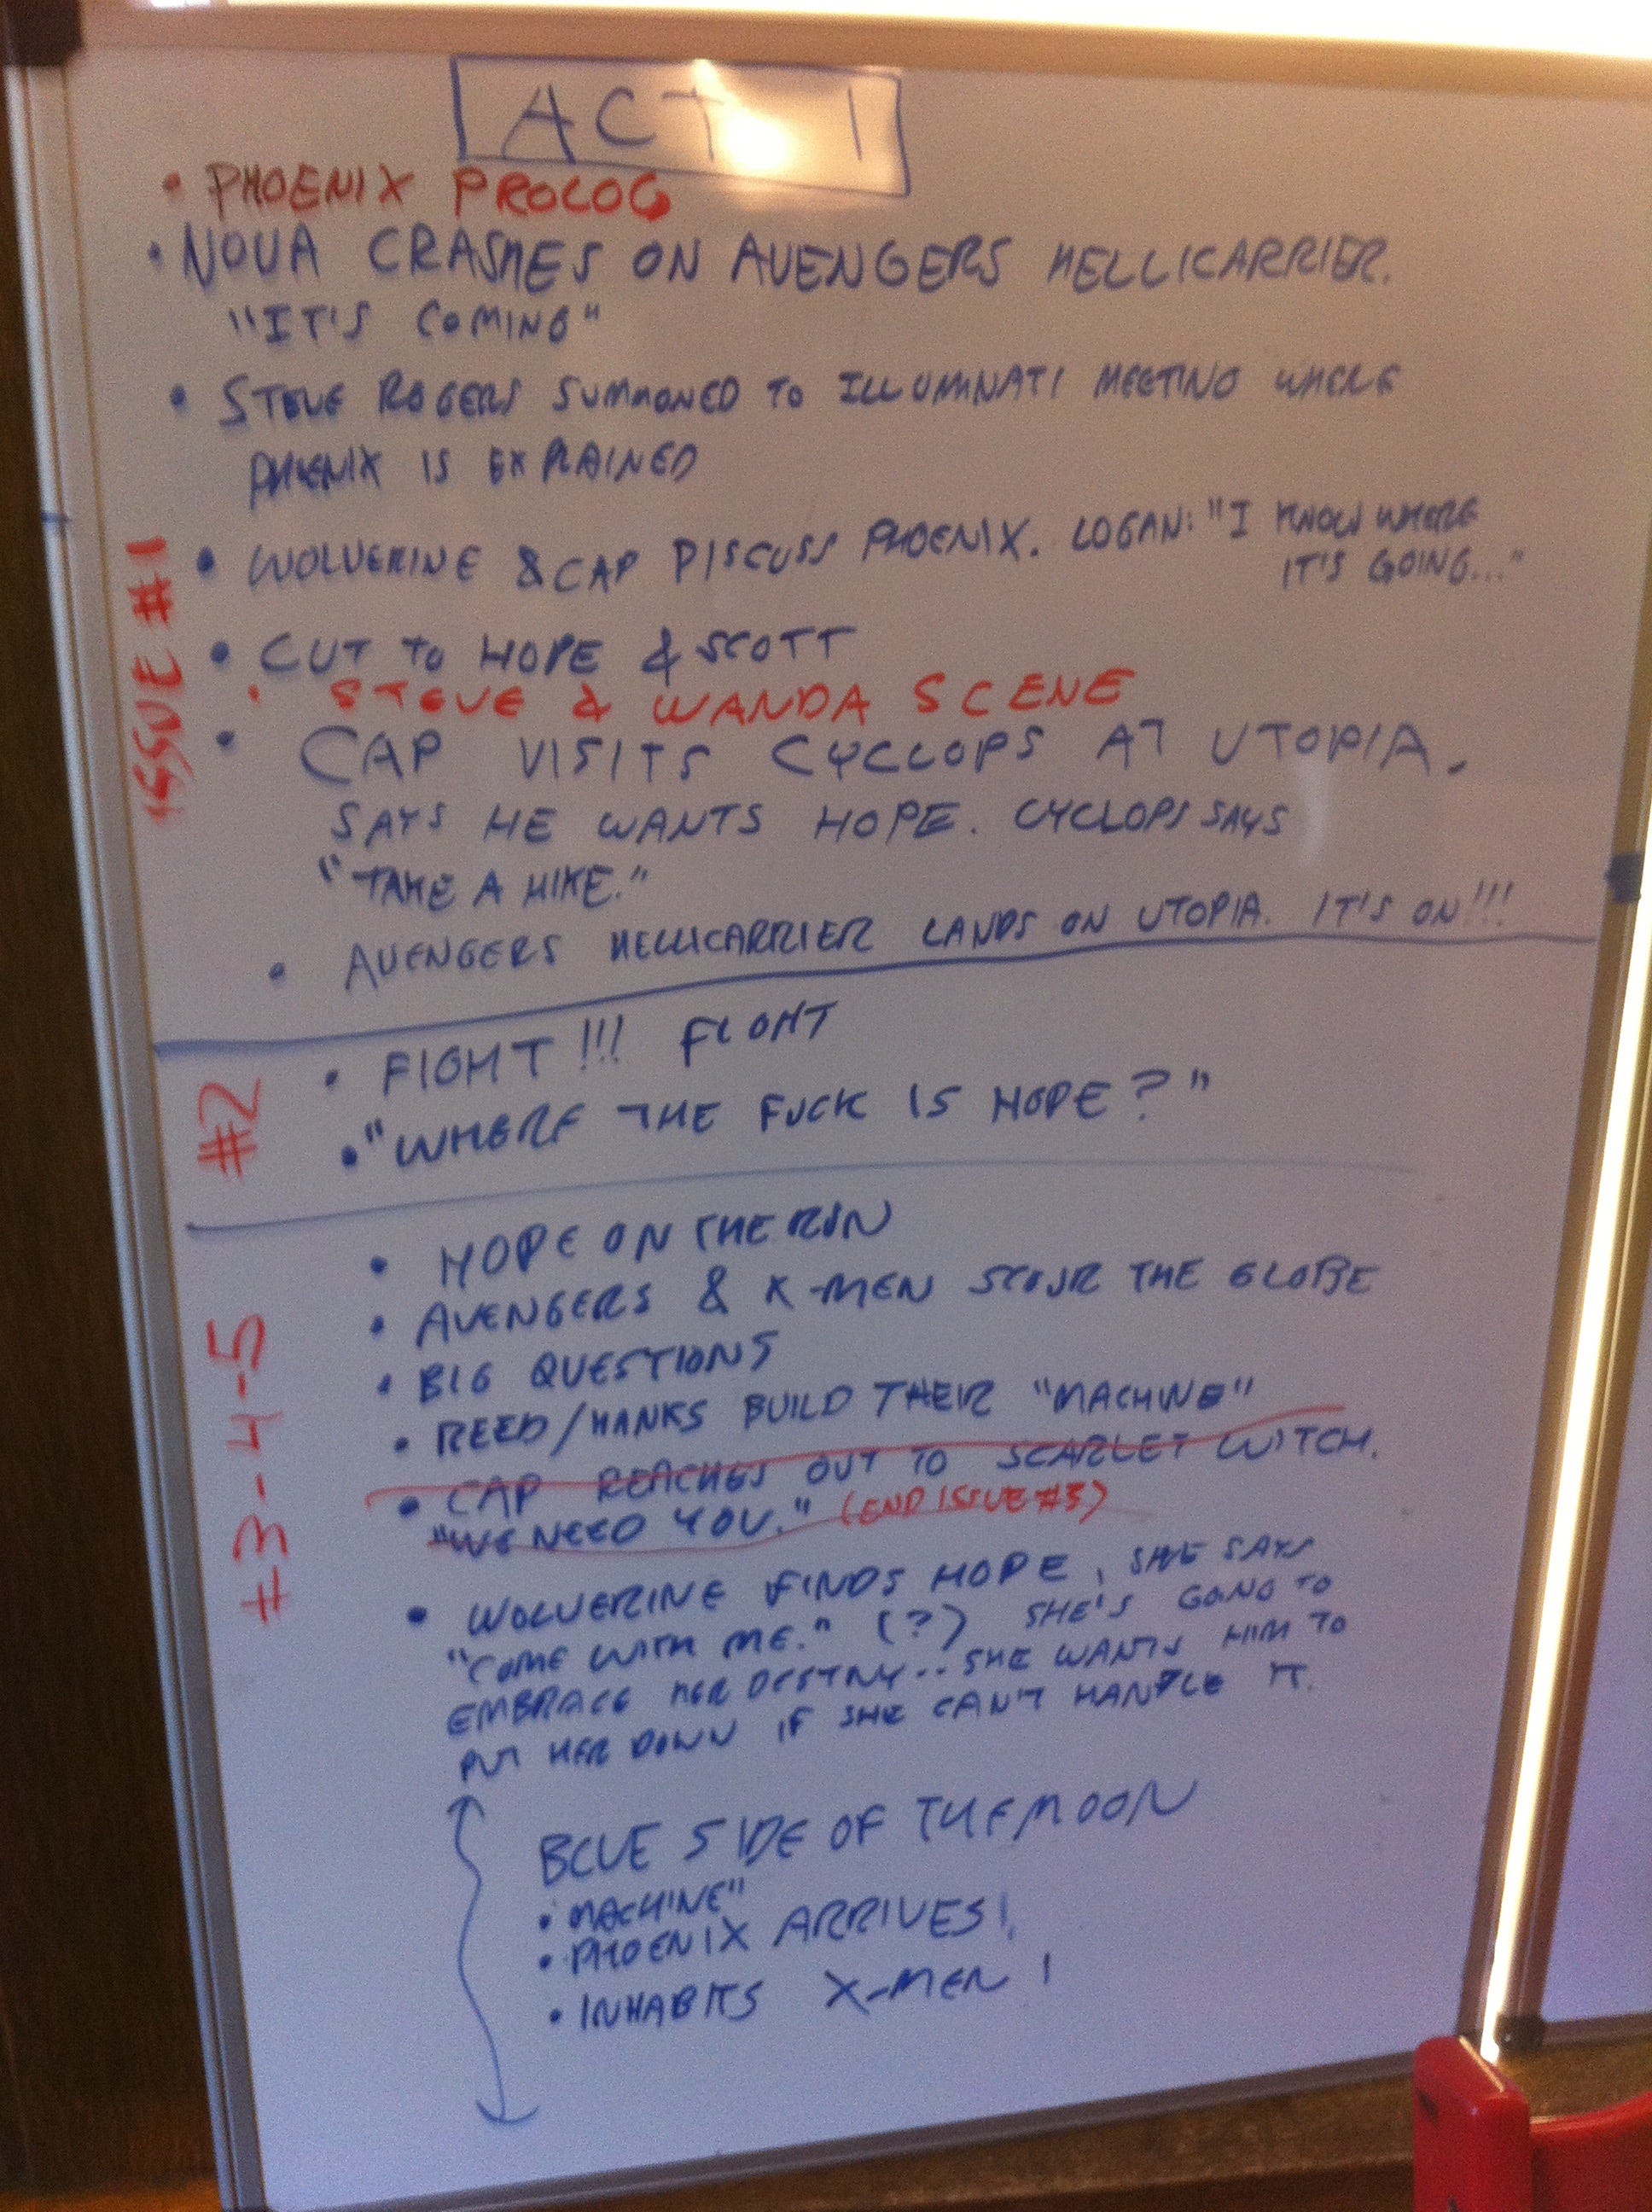 ACT 1
• PHOENIX PROLOG
• NOVA CRASHES ON AVENGERS HELLICARRIER.
"IT'S COMING"
• STEVE ROGERS SUMMONED TO ILLUMINATI MEETING WHERE
PHOENIX IS EXPLAINED
• WOLVERINE & CAP DISCUSS PHOENIX. LOGAN: "I KNOW WHERE
IT'S GOING..."
ISSUE #1
• CUT TO HOPE & SCOTT
• STEVE & WANDA SCENE
• CAP VISITS CYCLOPS AT UTOPIA.
SAYS HE WANTS HOPE. CYCLOPS SAYS
"TAKE A HIKE."
• AVENGERS HELLICARRIER LANDS ON UTOPIA. IT'S ON!!!
#2
• FIGHT!!! FIGHT
• "WHERE THE FUCK IS HOPE?"
#3-4-5
• HOPE ON THE RUN
• AVENGERS & X-MEN SCOUR THE GLOBE
• BIG QUESTIONS
• REED/HANKS BUILD THEIR "MACHINE"
• CAP REACHES OUT TO SCARLET WITCH.
"WE NEED YOU." (END ISSUE #3)
• WOLVERINE FINDS HOPE, SHE SAYS
"COME WITH ME." (?) SHE'S GOING TO
EMBRACE HER DESTINY.. SHE WANTS HIM TO
PUT HER DOWN IF SHE CAN'T HANDLE IT.
BLUE SIDE OF THE MOON
• MACHINE"
• PHOENIX ARRIVES!
• INHABITS X-MEN!